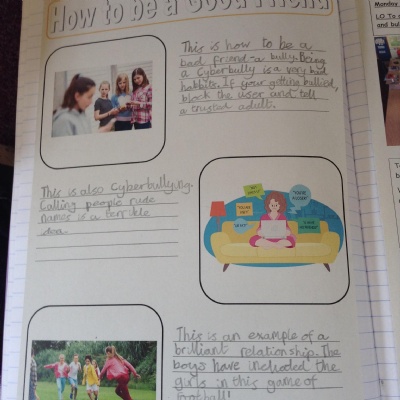 How to be a Good Friend
This is how to be a
bad friend-a bully. Being
a Cyberbully is a very bad
habits. If your getting bullied,
block the user and tell
a trusted adult.
This is also cyberbullying.
Calling people rude
names is a terrible
idea.
This is an example of a
brilliant relationship. The
boys have included the
girls in this game of
football!
Monday
LO To
and bul